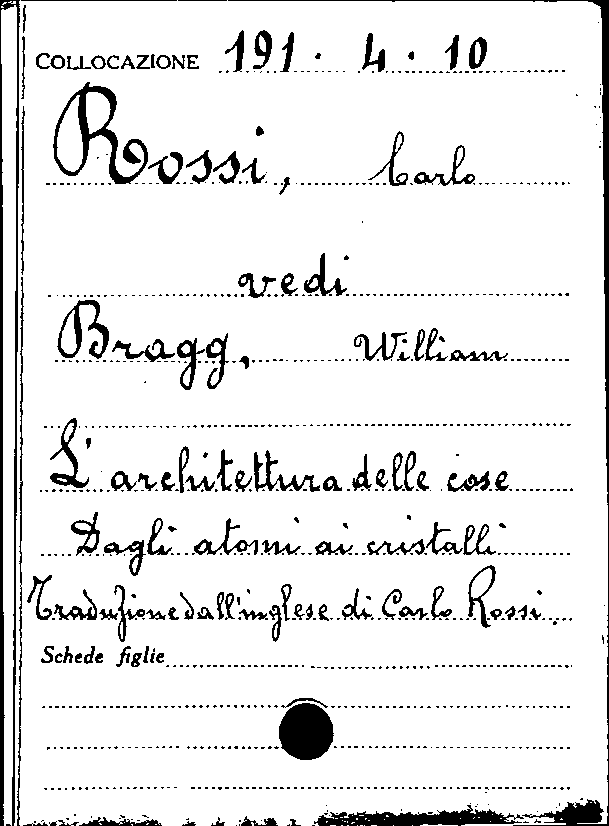 COLLOCAZIONE 191 . 4 . 10
Rossi, Carlo
vedi
Bragg, William
L'architettura delle cose
Dagli atomi ai cristalli
Traduzione dall'inglese di Carlo Rossi.
Schede figlie